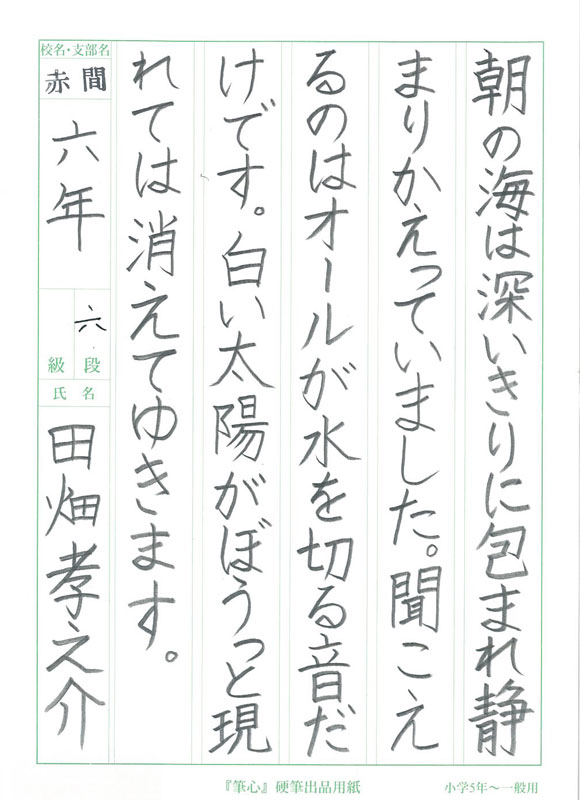 朝の海は深いきりに包まれ静
まりかえっていました。聞こえ
るのはオールが水を切る音だ
けです。白い太陽がぼうっと現
れては消えてゆきます。
校名・支部名
赤間
六年
六
級 段
氏名
田畑孝之介
『筆心』硬筆出品用紙
小学5年〜一般用